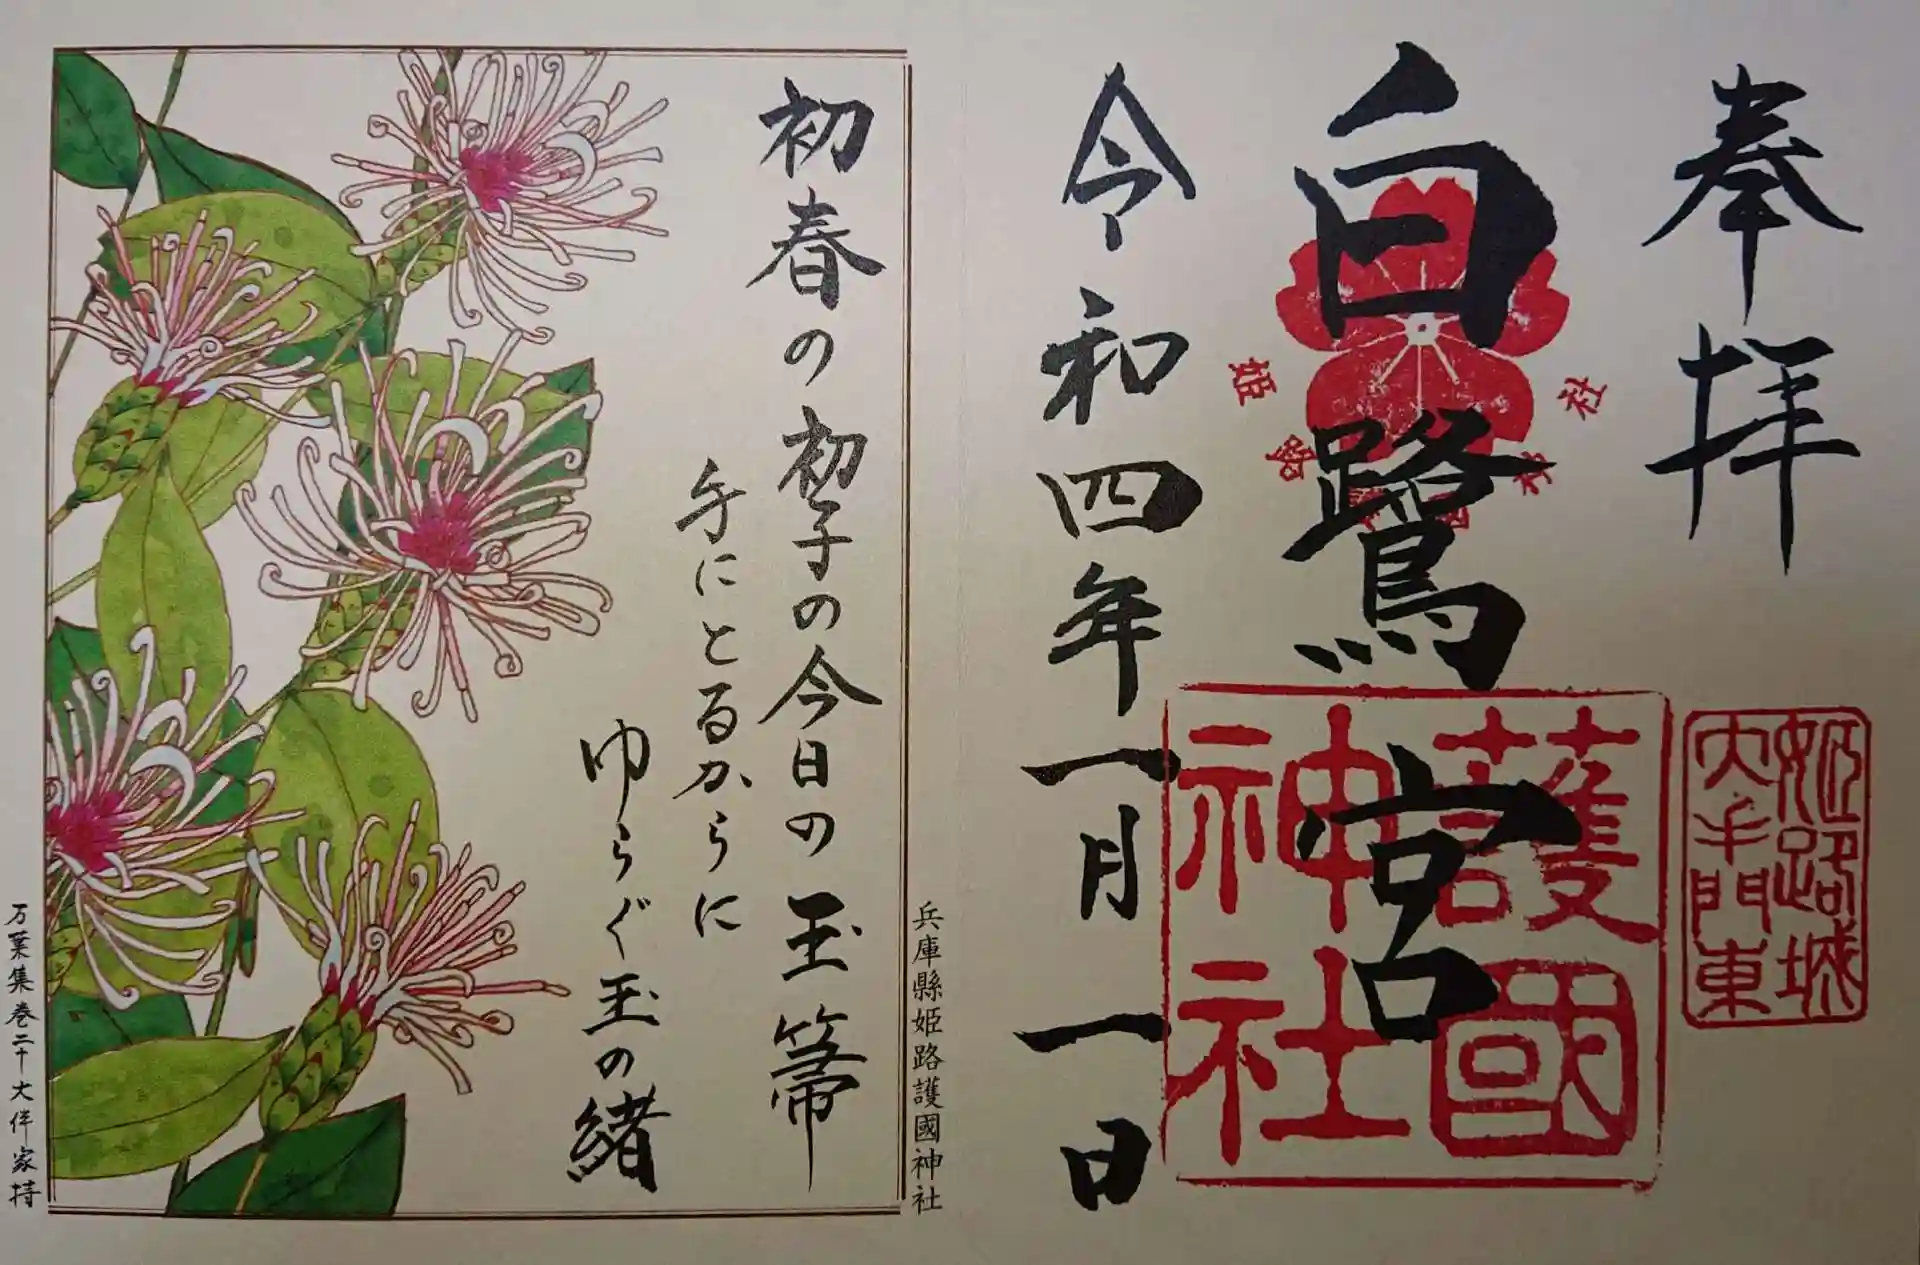 奉拝
姫路城
大手門東
白鷺宮
姫路護國神社
護國
神社
令和四年一月一日
兵庫縣姫路護國神社
初春の初子の今日の玉箒
手にとるからに
ゆらぐ玉の緒
万葉集巻二十大伴家持